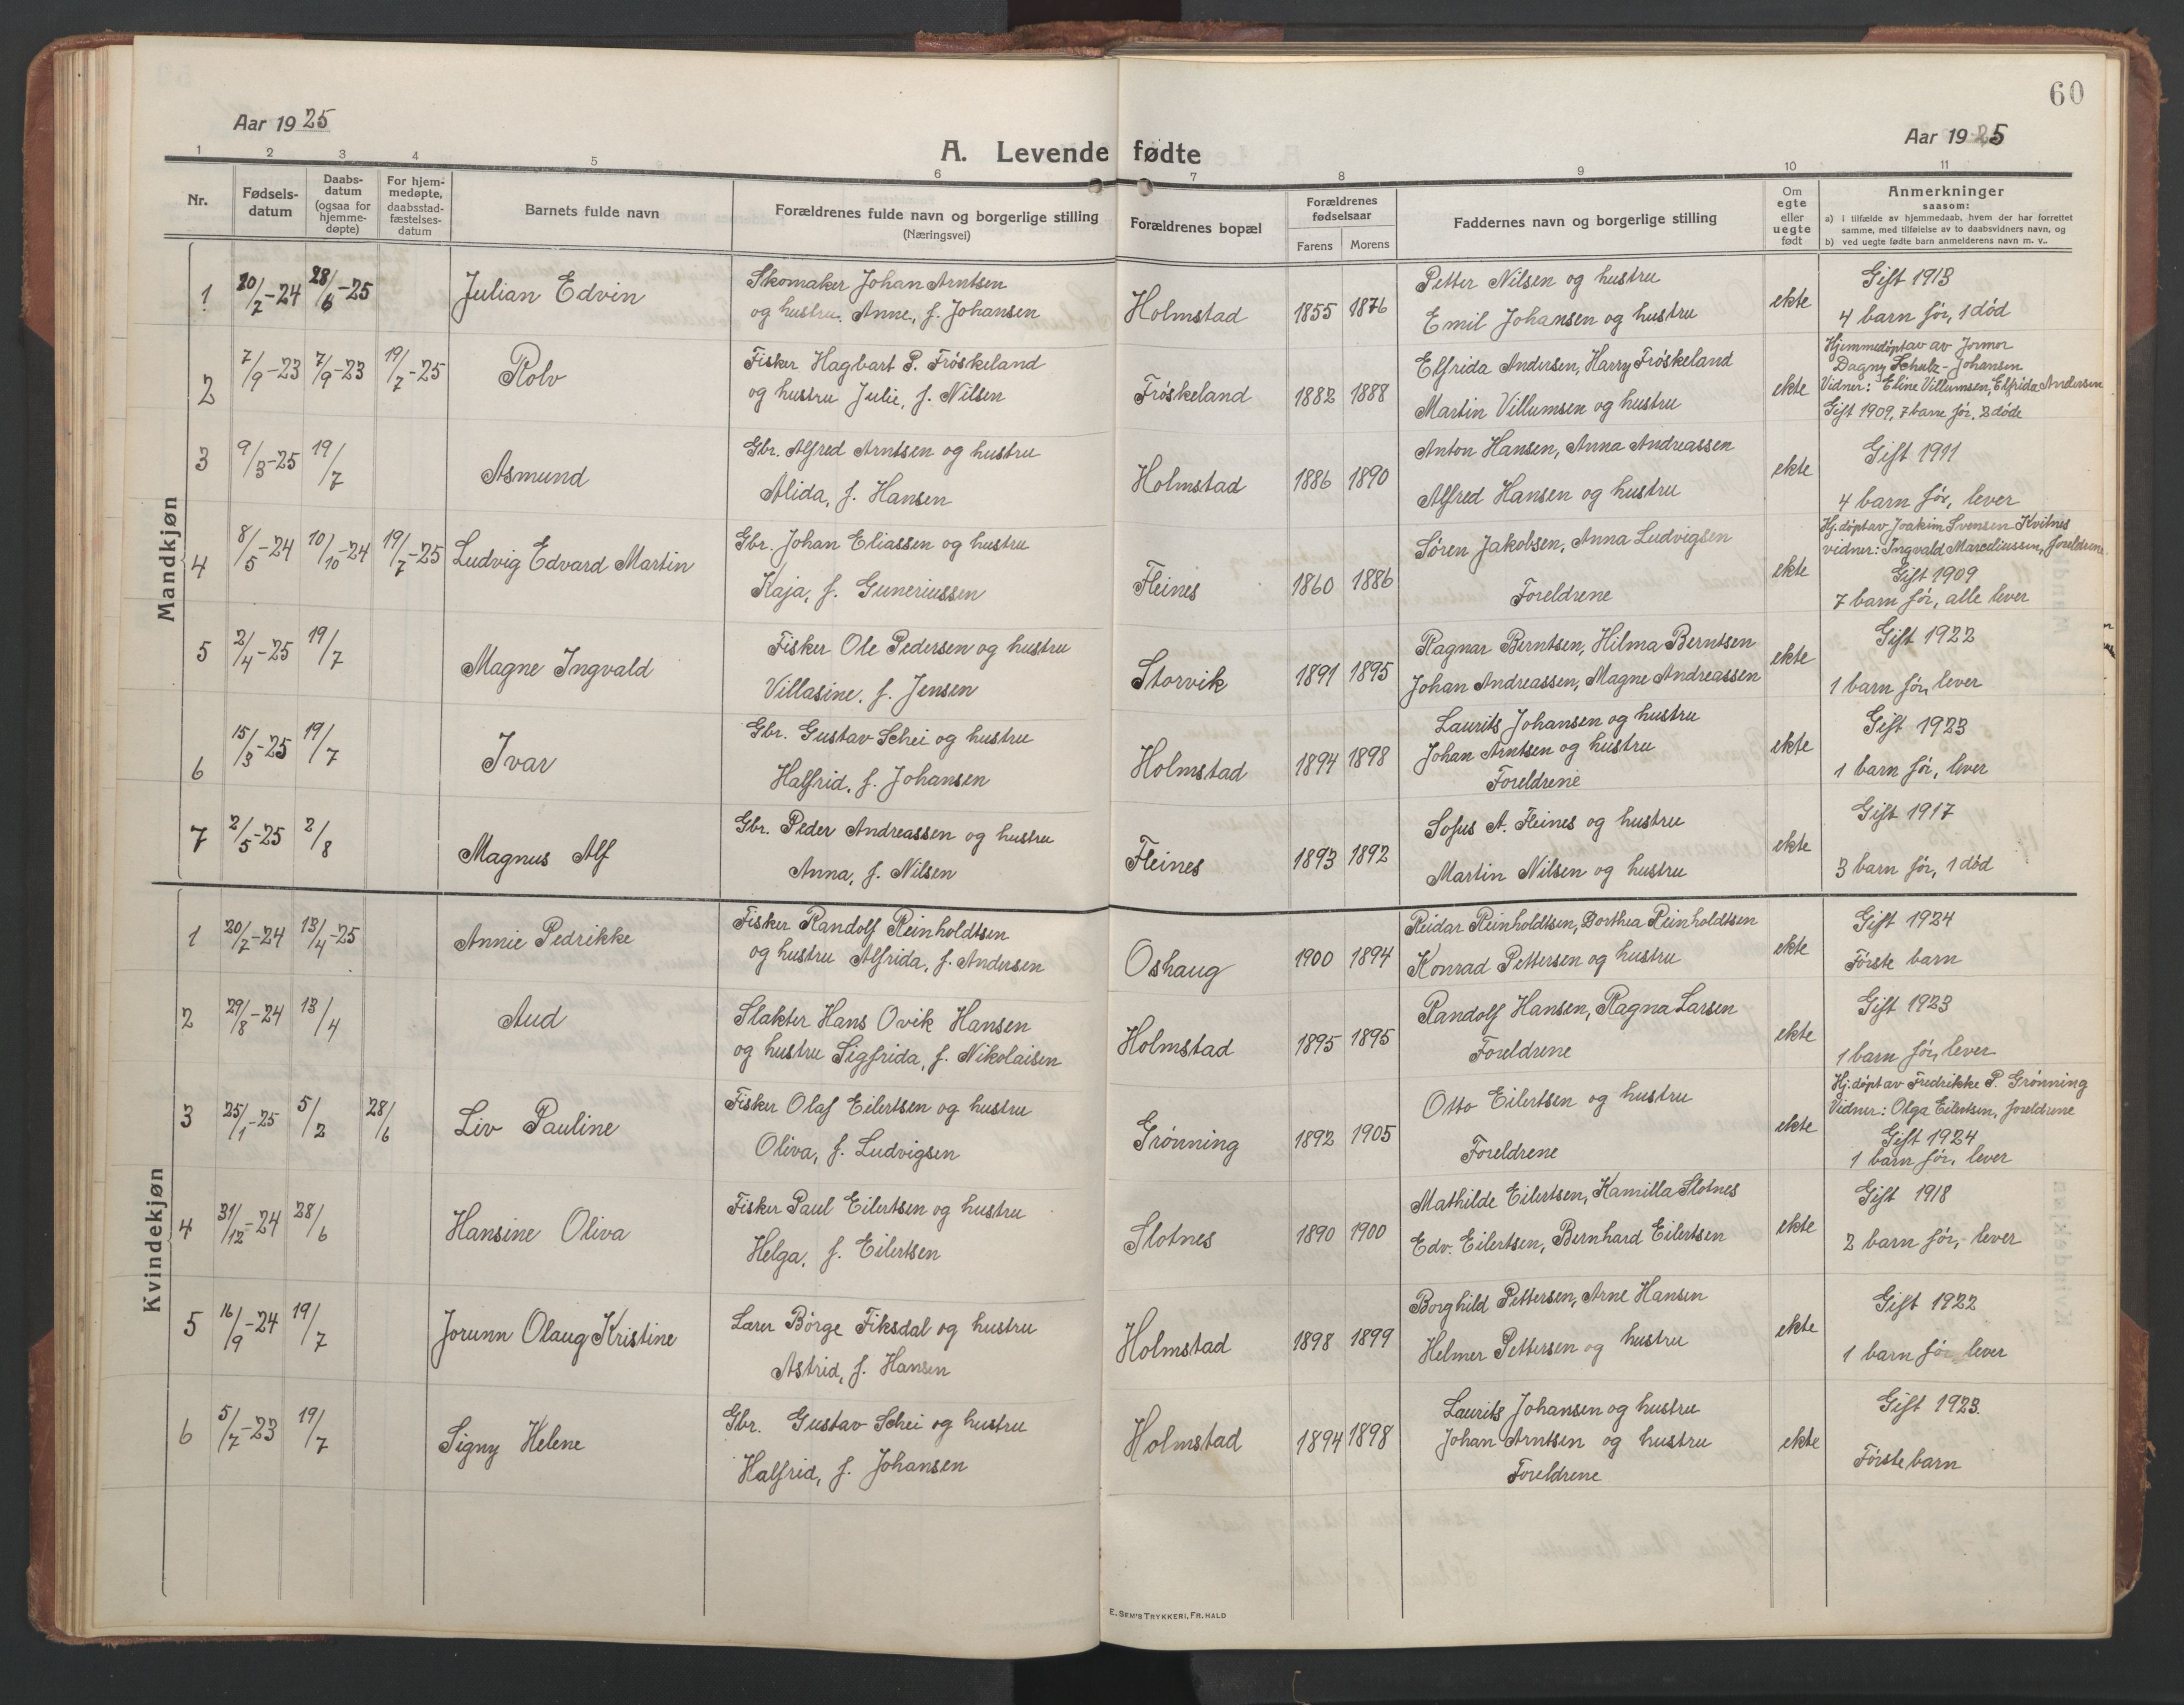 60
Aar 1925
Aar 1925
A. Levende fødte
1 2 3 4 5 6 7 8 9 10 11
Nr.
Fødselsdatum
Daabsdatum (ogsaa for hjemmedøpte)
For hjemmedøpte, daabsstadfæstelsesdatum
Barnets fulde navn
Forældrenes fulde navn og borgerlige stilling
(Næringsvei)
Forældrenes bopæl
Forældrenes fødselsaar
Farens Morens
Faddernes navn og borgerlige stilling
Om egte eller uegte født
Anmerkninger
saasom:
a) i tilfælde av hjemmedaab, hvem der har forrettet
samme, med tilføielse av to daabsvidners navn, og
b) ved uegte fødte barn anmelderens navn m. v..
Mandkjøn
1 20/7-24 28/6-25 Julian Edvin
Skomaker Johan Arntsen
og hustru Anne, f. Johansen
Holmstad 1855 1876
Petter Nilsen og hustru
Emil Johansen og hustru
ekte
Gift 1913
4 barn før, 1 död
2 7/9-23 7/9-23 19/7-25 Rolv
Fisker Hagbart P. Frøskeland
og hustru Julie, f. Nilsen
Frøskeland 1882 1888
Elfrida Andersen, Harry Frøskeland
Martin Villumsen og hustru
ekte
Hjemmedøpt av av Jormor
Dagny Schulz-Johansen
Vidner: Eline Villumsen, Elfrida Andersen
Gift 1909, 7 barn før, 2 døde
3 9/3-25 19/7 Asmund
Gbr. Alfred Arntsen og hustru
Alida, f. Hansen
Holmstad 1886 1890
Anton Hansen, Anna Andreassen
Alfred Hansen og hustru
ekte
Gift 1911
4 barn før, lever
4 8/5-24 10/10-24 19/7-25 Ludvig Edvard Martin
Gbr. Johan Eliassen og hustru
Kaja, f. Guneriussen
Fleines 1860 1886
Søren Jakobsen, Anna Ludvigsen
Foreldrene
ekte
Hj.døpt av Joakim Svensen Kvitnes
vidner: Ingvald Marceliussen, foreldrene
Gift 1909
7 barn før, alle lever
5 2/4-25 19/7 Magne Ingvald
Fisker Ole Pedersen og hustru
Villasine, f. Jensen
Storvik 1891 1895
Ragnar Berntsen, Hilma Berntsen
Johan Andreassen, Magne Andreassen
ekte
Gift 1922
1 barn før, lever
6 15/3-25 19/7 Ivar
Gbr. Gustav Schei og hustru
Halfrid, f. Johansen
Holmstad 1894 1898
Laurits Johansen og hustru
Johan Arntsen og hustru
Foreldrene
ekte
Gift 1923
1 barn før, lever
7 2/5-25 2/8 Magnus Alf
Gbr. Peder Andreassen og hustru
Anna, f. Nilsen
Fleines 1893 1892
Sofus A. Fleines og hustru
Martin Nilsen og hustru
ekte
Gift 1917
3 barn før, 1 død
Kvindekjøn
1 20/7-24 13/4-25 Annie Pedrikke
Fisker Randolf Reinholdtsen
og hustru Alfrida, f. Andersen
Oshaug 1900 1894
Reidar Reinholdtsen, Dorthea Reinholdtsen
Konrad Pettersen og hustru
ekte
Gift 1924
Første barn
2 29/8-24 13/4 Aud
Slakter Hans Ovik Hansen
og hustru Sigfrida, f. Nikolaisen
Holmstad 1895 1895
Randolf Hansen, Ragna Larsen
Foreldrene
ekte
Gift 1923
1 barn før, lever
3 25/1-25 5/2 28/6 Liv Pauline
Fisker Olaf Eilertsen og hustru
Oliva, f. Ludvigsen
Grønning 1892 1905
Otto Eilertsen og hustru
Foreldrene
ekte
Hj.døpt av Fredrikke P. Grønning
Vidner: Olga Eilertsen, foreldrene
Gift 1924
1 barn før, lever
4 31/12-24 28/6 Hansine Oliva
Fisker Paul Eilertsen og hustru
Helga, f. Eilertsen
Slotnes 1890 1900
Mathilde Eilertsen, Kamilla Slotnes
Edv. Eilertsen, Bernhard Eilertsen
ekte
Gift 1918
2 barn før, lever
5 16/9-24 19/7 Jorunn Olaug Kristine
Lærer Børge Fiksdal og hustru
Astrid, f. Hansen
Holmstad 1898 1899
Borghild Pettersen, Arne Hansen
Helmer Pettersen og hustru
ekte
Gift 1922
1 barn før lever
6 5/7-23 19/7 Signy Helene
Gbr. Gustav Schei og hustru
Halfrid, f. Johansen
Holmstad 1894 1898
Laurits Johansen og hustru
Johan Arntsen og hustru
Foreldrene
ekte
Gift 1923.
Første barn
E. SEM'S TRYKKERI, FR.HALD